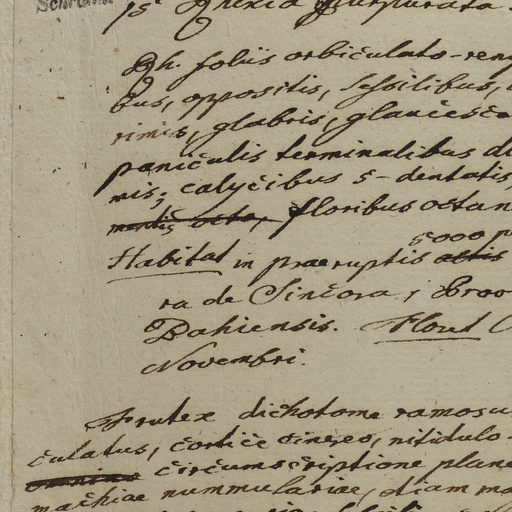 15. Rhexia purpurata.
Rh. foliis orbiculato-ren
bus, oppositis, sessilibus,
rimis, glabris, glaucesce
paniculis terminalibus di
mis; calycibus 5-dentatis,
floribus octan
5000 p
Habitat in praeruptis altis
ra de Sincora; Prov
Bahiensis. Floret
Novembri.
Frutex dichotome ramosu
culatus, cortice cinereo, nitidulo
omnino circumscriptione plane
machiae nummulariae, etiam ma